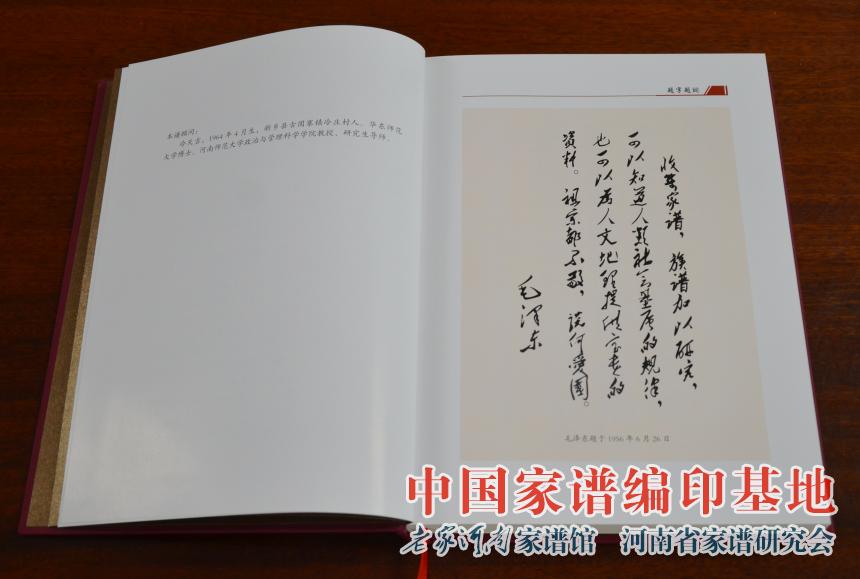 本谱顾问：
冷天吉，1964年4月生，新乡县古固寨镇冷庄村人。华东师范
大学博士，河南师范大学政治与管理科学学院教授、研究生导师。
题字题词
收集家谱，族谱加以研究，
可以知道人类社会发展的规律，
也可以为人文地理提供宝贵的
资料。祖宗都不敬，谈何爱国。
毛泽东
毛泽东题于1956年6月26日
中国家谱编印基地
老家河南家谱馆 河南省家谱研究会